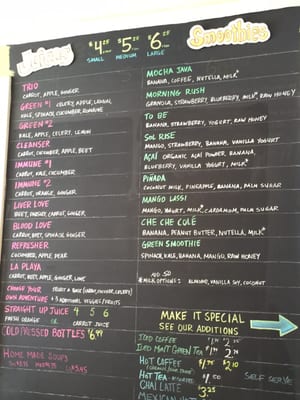 Juices
$4.25 $5.25 $6.25
SMALL MEDIUM LARGE
Smoothies
TRIO
CARROT, APPLE, GINGER
GREEN #1 CELERY, APPLE, LEMON,
KALE, SPINACH, CUCUMBER, ROMAINE
GREEN #2
KALE, APPLE, CELERY, LEMON
CLEANSER
CARROT, CUCUMBER, APPLE, BEET
IMMUNE #1
CARROT, KALE, CUCUMBER
IMMUNE #2
CARROT, ORANGE, GINGER
LIVER LOVE
BEET, ORANGE, CARROT, GINGER
BLOOD LOVE
CARROT, BEET, SPINACH, GINGER
REFRESHER
CUCUMBER, APPLE, PEAR
LA PLAYA
CARROT, BEET, APPLE, GINGER, LIME
CHOOSE YOUR
OWN ADVENTURE +3 ADDITIONAL VEGGIES/FRUITS
STRAIGHT UP JUICE 4 5 6
FRESH ORANGE OR CARROT JUICE
COLD PRESSED BOTTLES $6.99
HOME MADE SOUPS
MOCHA JAVA
BANANA, COFFEE, NUTELLA, MILK*
MORNING RUSH
GRANOLA, STRAWBERRY, BLUEBERRY, MILK*, RAW HONEY
TO BE
BANANA, STRAWBERRY, YOGURT, RAW HONEY
SOL RISE
MANGO, STRAWBERRY, BANANA, VANILLA YOGURT
AÇAI ORGANIC AÇAI POWDER, BANANA,
BLUEBERRY, VANILLA YOGURT, MILK*
PIÑADA
COCONUT MILK, PINEAPPLE, BANANA, PALM SUGAR
MANGO LASSI
MANGO, YOGURT, MILK*, CARDAMOM, PALM SUGAR
CHE CHE COLÉ
BANANA, PEANUT BUTTER, NUTELLA, MILK*
GREEN SMOOTHIE
SPINACH, KALE, BANANA, MANGO, RAW HONEY
ADD .50
*MILK OPTIONS: ALMOND, VANILLA SOY, COCONUT
MAKE IT SPECIAL
SEE OUR ADDITIONS
ICED COFFEE
ICED MINT GREEN TEA
HOT COFFEE
HOT TEA
SELF SERVE
CHAI LATTE $3.25
MEXICAN HOT